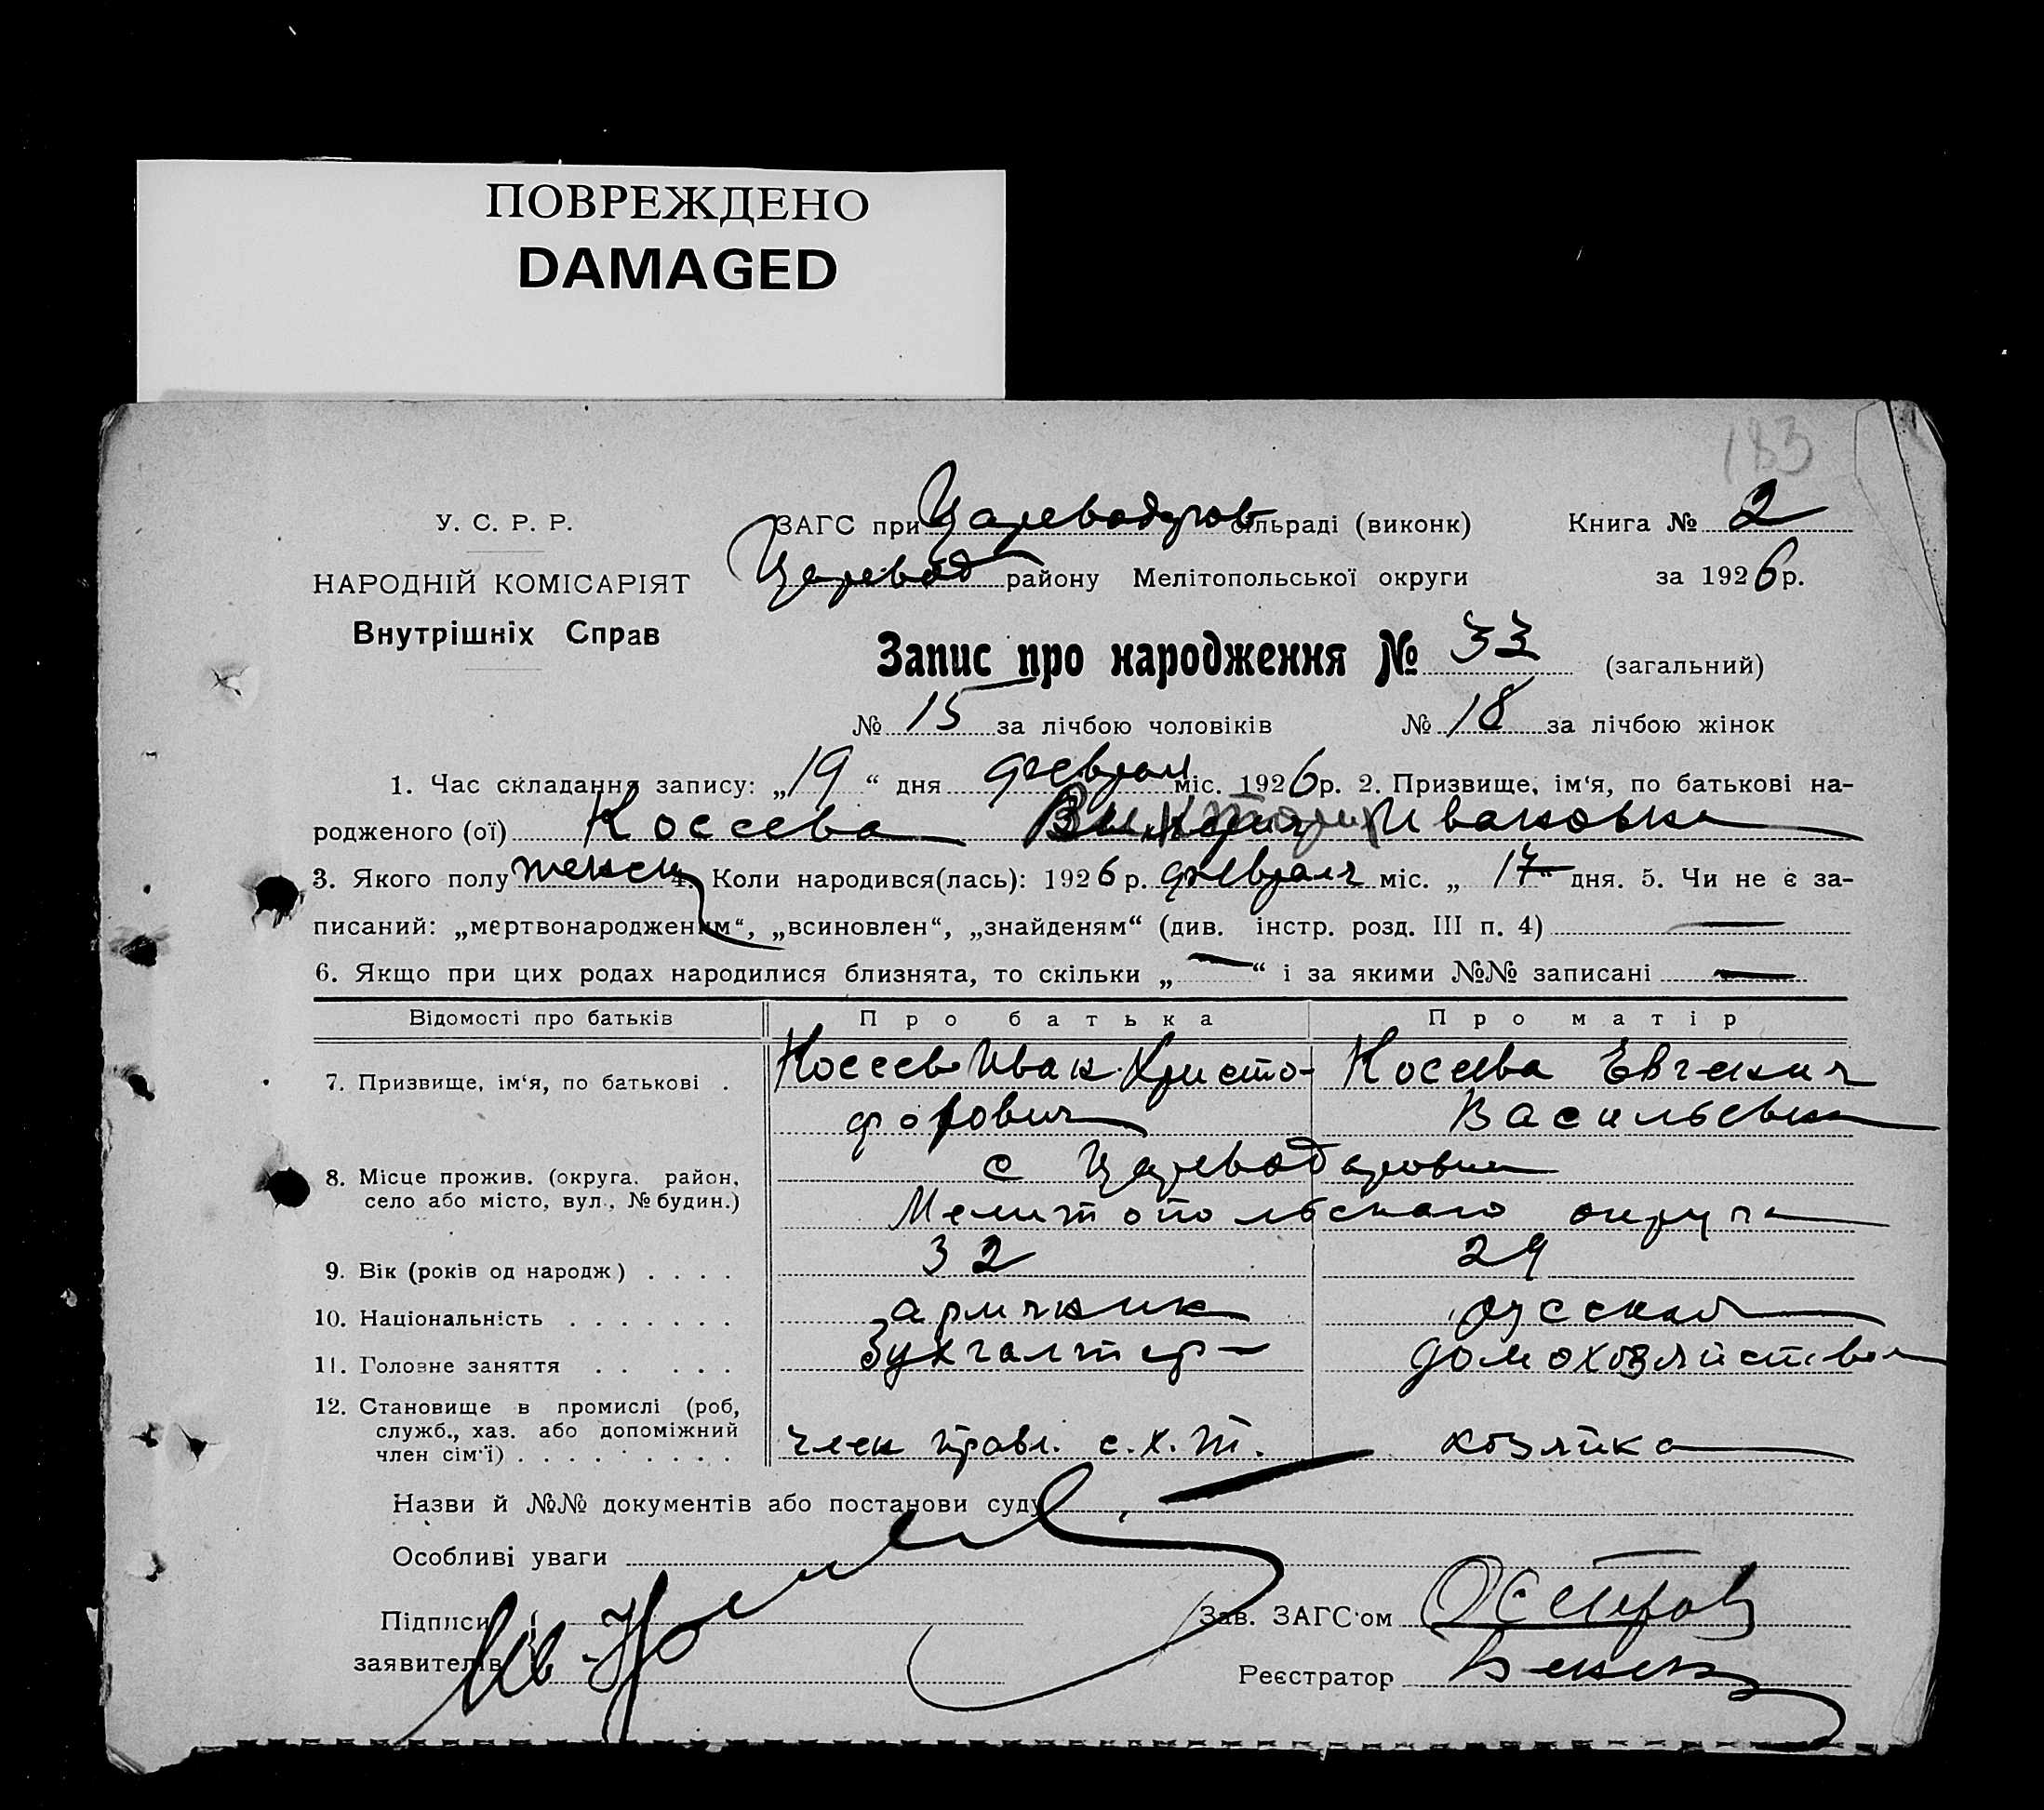 ПОВРЕЖДЕНО
DAMAGED
183
У. С. Р. Р.
НАРОДНІЙ КОМІСАРІЯТ
Внутрішніх Справ
ЗАГС при Цареводаров сільраді (виконк)
Книга № 2
Царевод району Мелітопольської округи
за 1926 р.
Запис про народження № 33 (загальний)
№ 15 за лічбою чоловіків № 18 за лічбою жінок
1. Час складання запису: „19“ дня феврал міс. 1926 р. 2. Призвище, ім'я, по батькові на-
родженого (ої) Коссева Ивановна
3. Якого полу женск 4. Коли народився(лась): 1926 р. февраля міс. „17“ дня. 5. Чи не є за-
писаний: „мертвонародженим“, „всиновлен“, „знайденям“ (див. інстр. розд. III п. 4) —
6. Якщо при цих родах народилися близнята, то скільки „—“ і за якими №№ записані —
Відомості про батьків Про батька Про матір
7. Призвище, ім'я, по батькові . Коссев Иван Христо- Коссева Евгения
форович Васильевна
8. Місце прожив. (округа. район, с Цареводаровка
село або місто, вул., № будин.)
Мелитопольскаго округа
9. Вік (років од народж) . . . . 32 29
10. Національність . . . . . . . армянин русская
11. Головне заняття . . . . . Бухгалтер домохозяйство
12. Становище в промислі (роб,
служб., хаз. або допоміжний
член сім'ї) . . . . . . . . . член правл. с.х.т. хозяйка
Назви й №№ документів або постанови суду
Особливі уваги
Підписи
заявителів
Зав. ЗАГС'ом Остров
Реєстратор